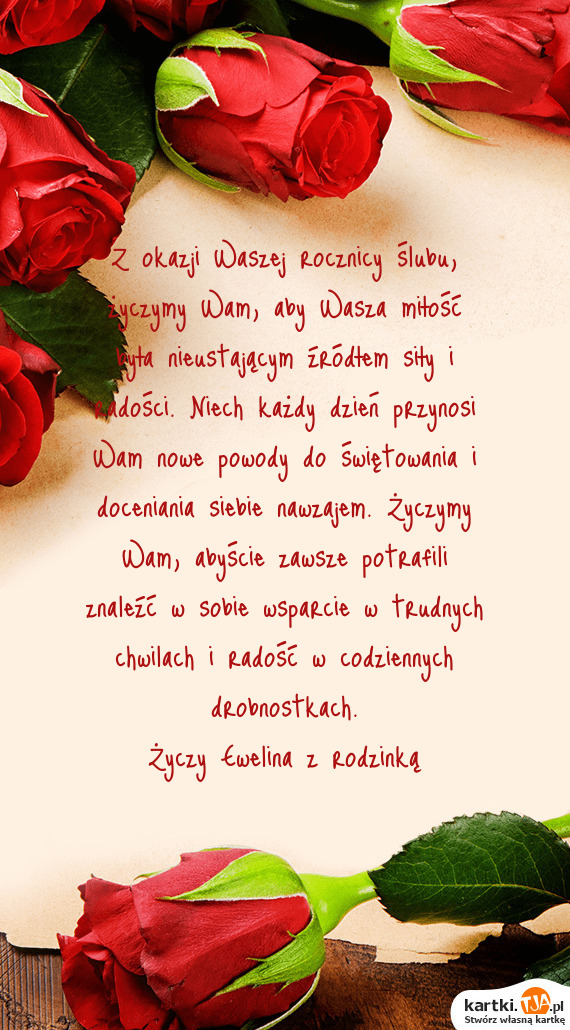 Z okazji Waszej rocznicy ślubu,
życzymy Wam, aby Wasza miłość
była nieustającym źródłem siły i
radości. Niech każdy dzień przynosi
Wam nowe powody do świętowania i
doceniania siebie nawzajem. Życzymy
Wam, abyście zawsze potrafili
znaleźć w sobie wsparcie w trudnych
chwilach i radość w codziennych
drobnostkach.
Życzy Ewelina z rodzinką
kartki.TJA.pl
Stwórz własną kartkę